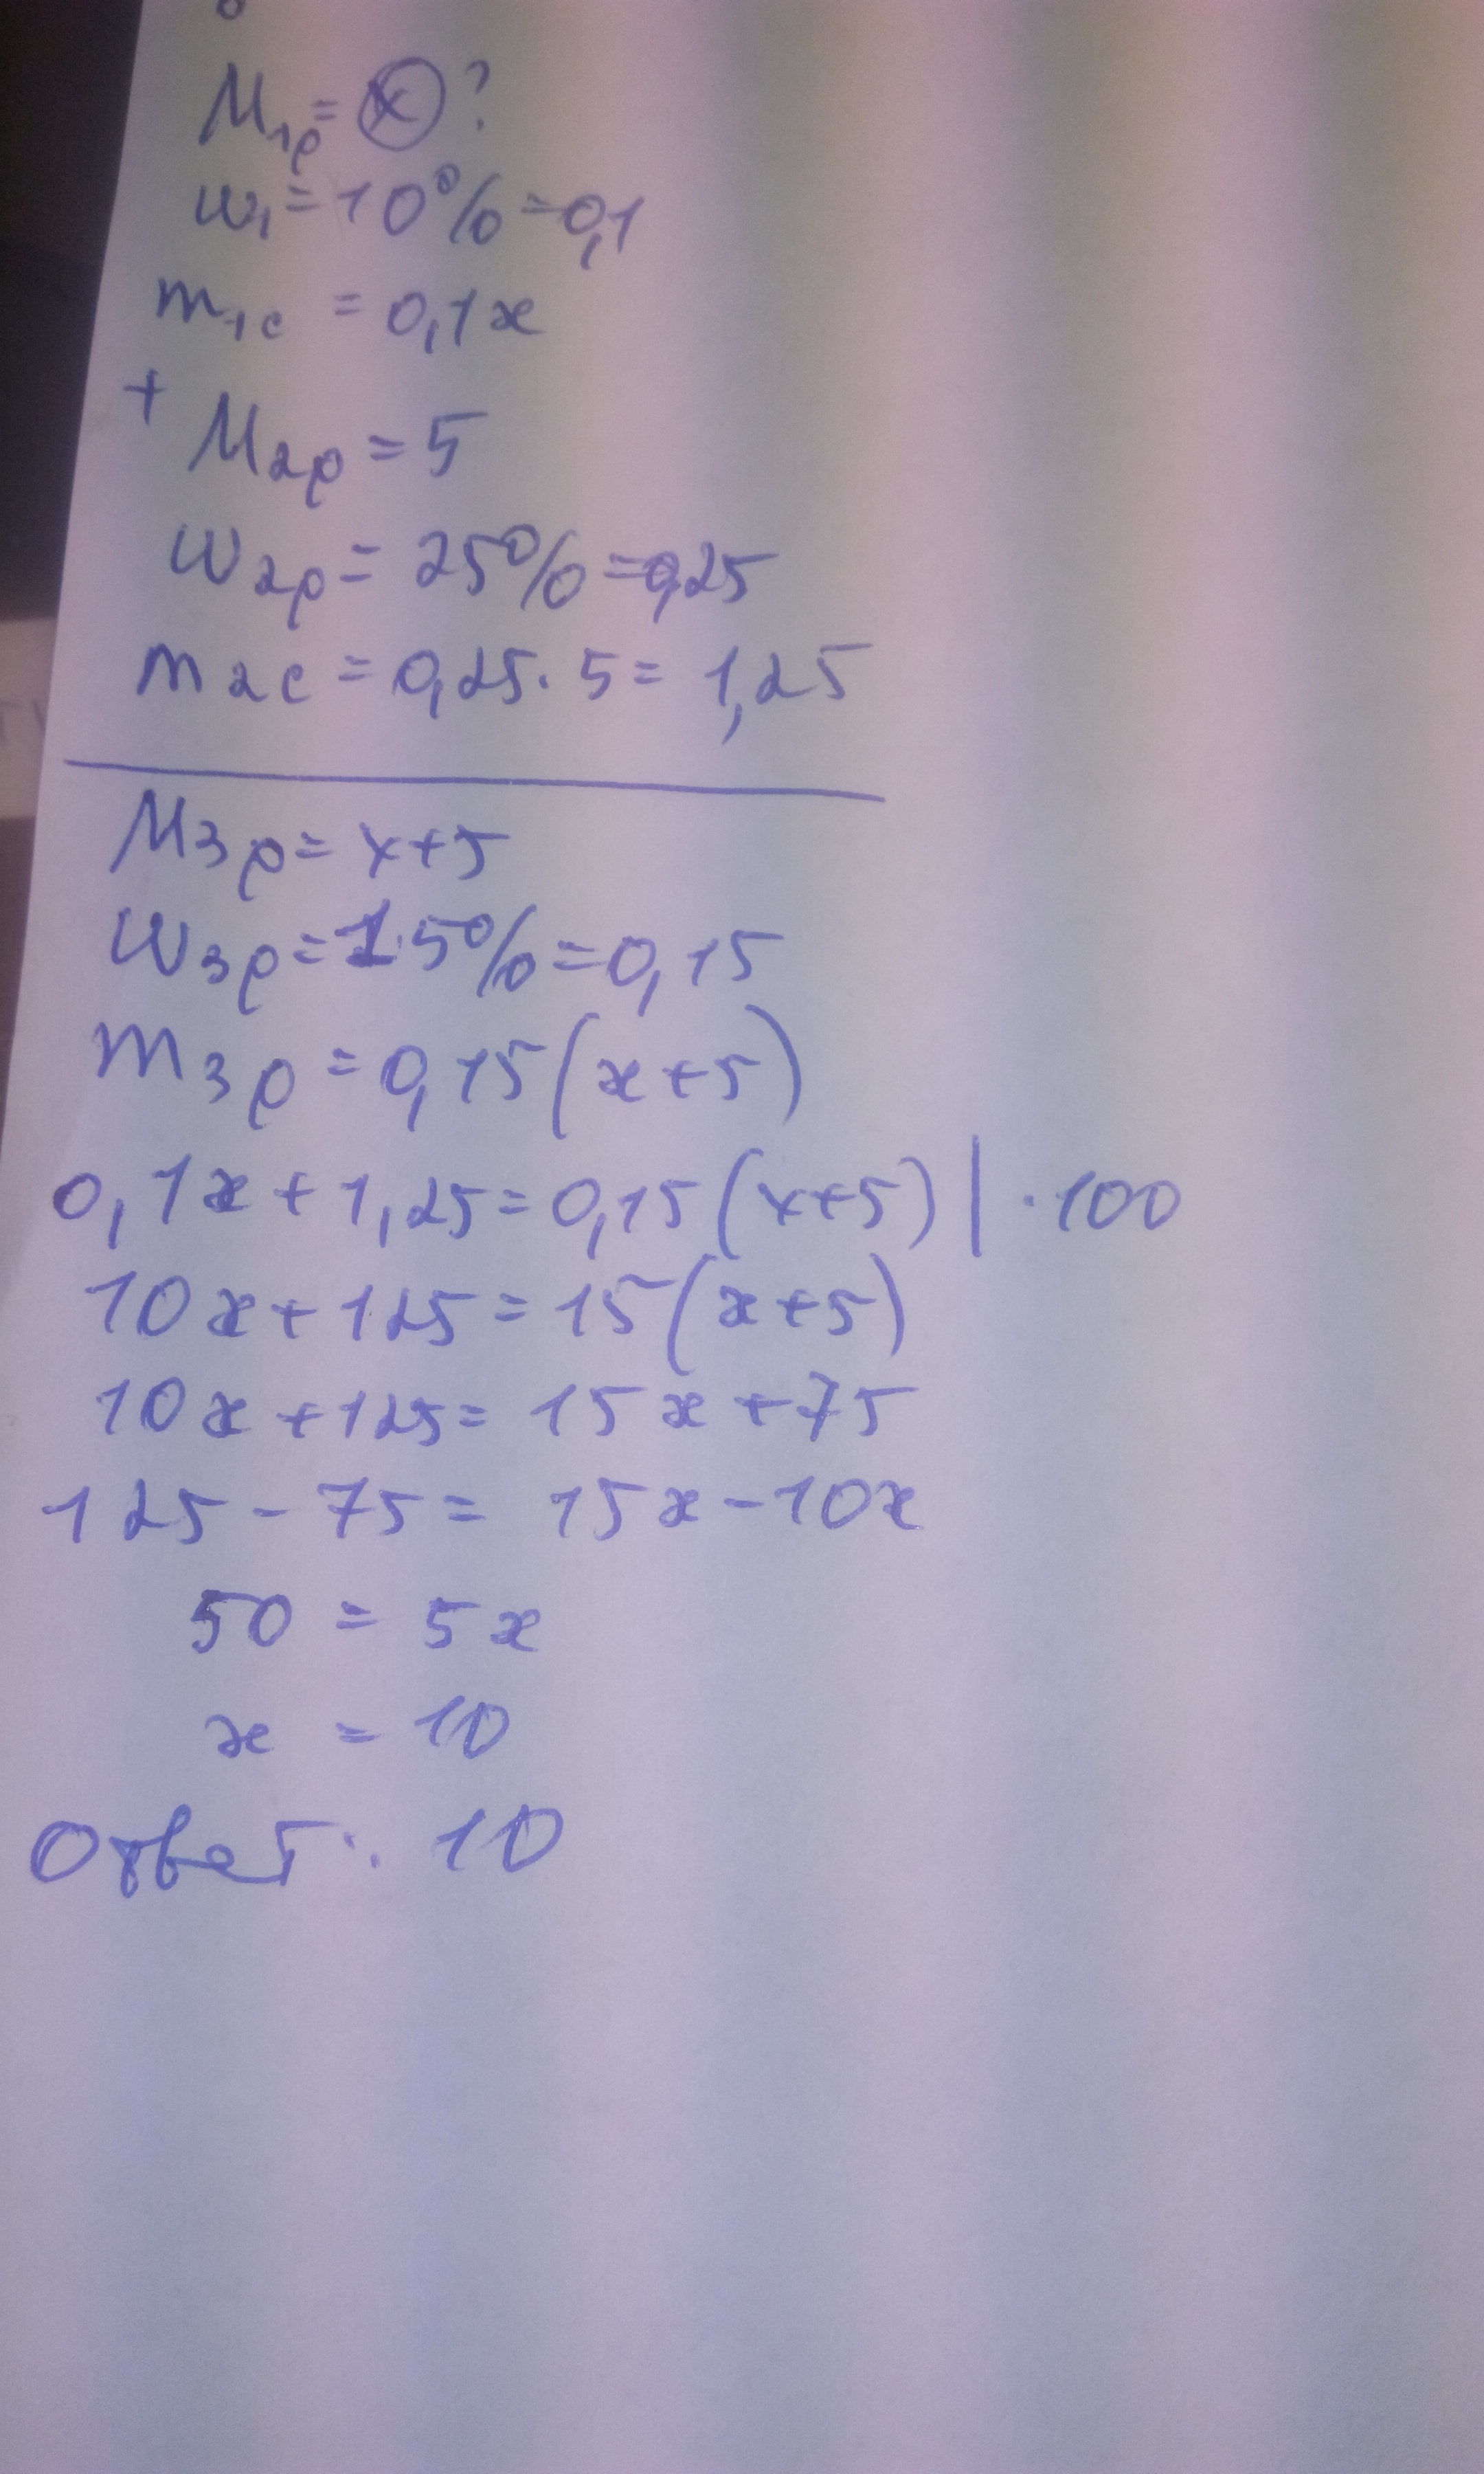 M1р = x ?
w1 = 10% = 0,1
m1с = 0,1x
+
M2р = 5
w2р = 25% = 0,25
m2с = 0,25 · 5 = 1,25
M3р = x+5
w3р = 15% = 0,15
m3р = 0,15(x+5)
0,1x + 1,25 = 0,15(x+5) | · 100
10x + 125 = 15(x+5)
10x + 125 = 15x + 75
125 - 75 = 15x - 10x
50 = 5x
x = 10
Ответ: 10